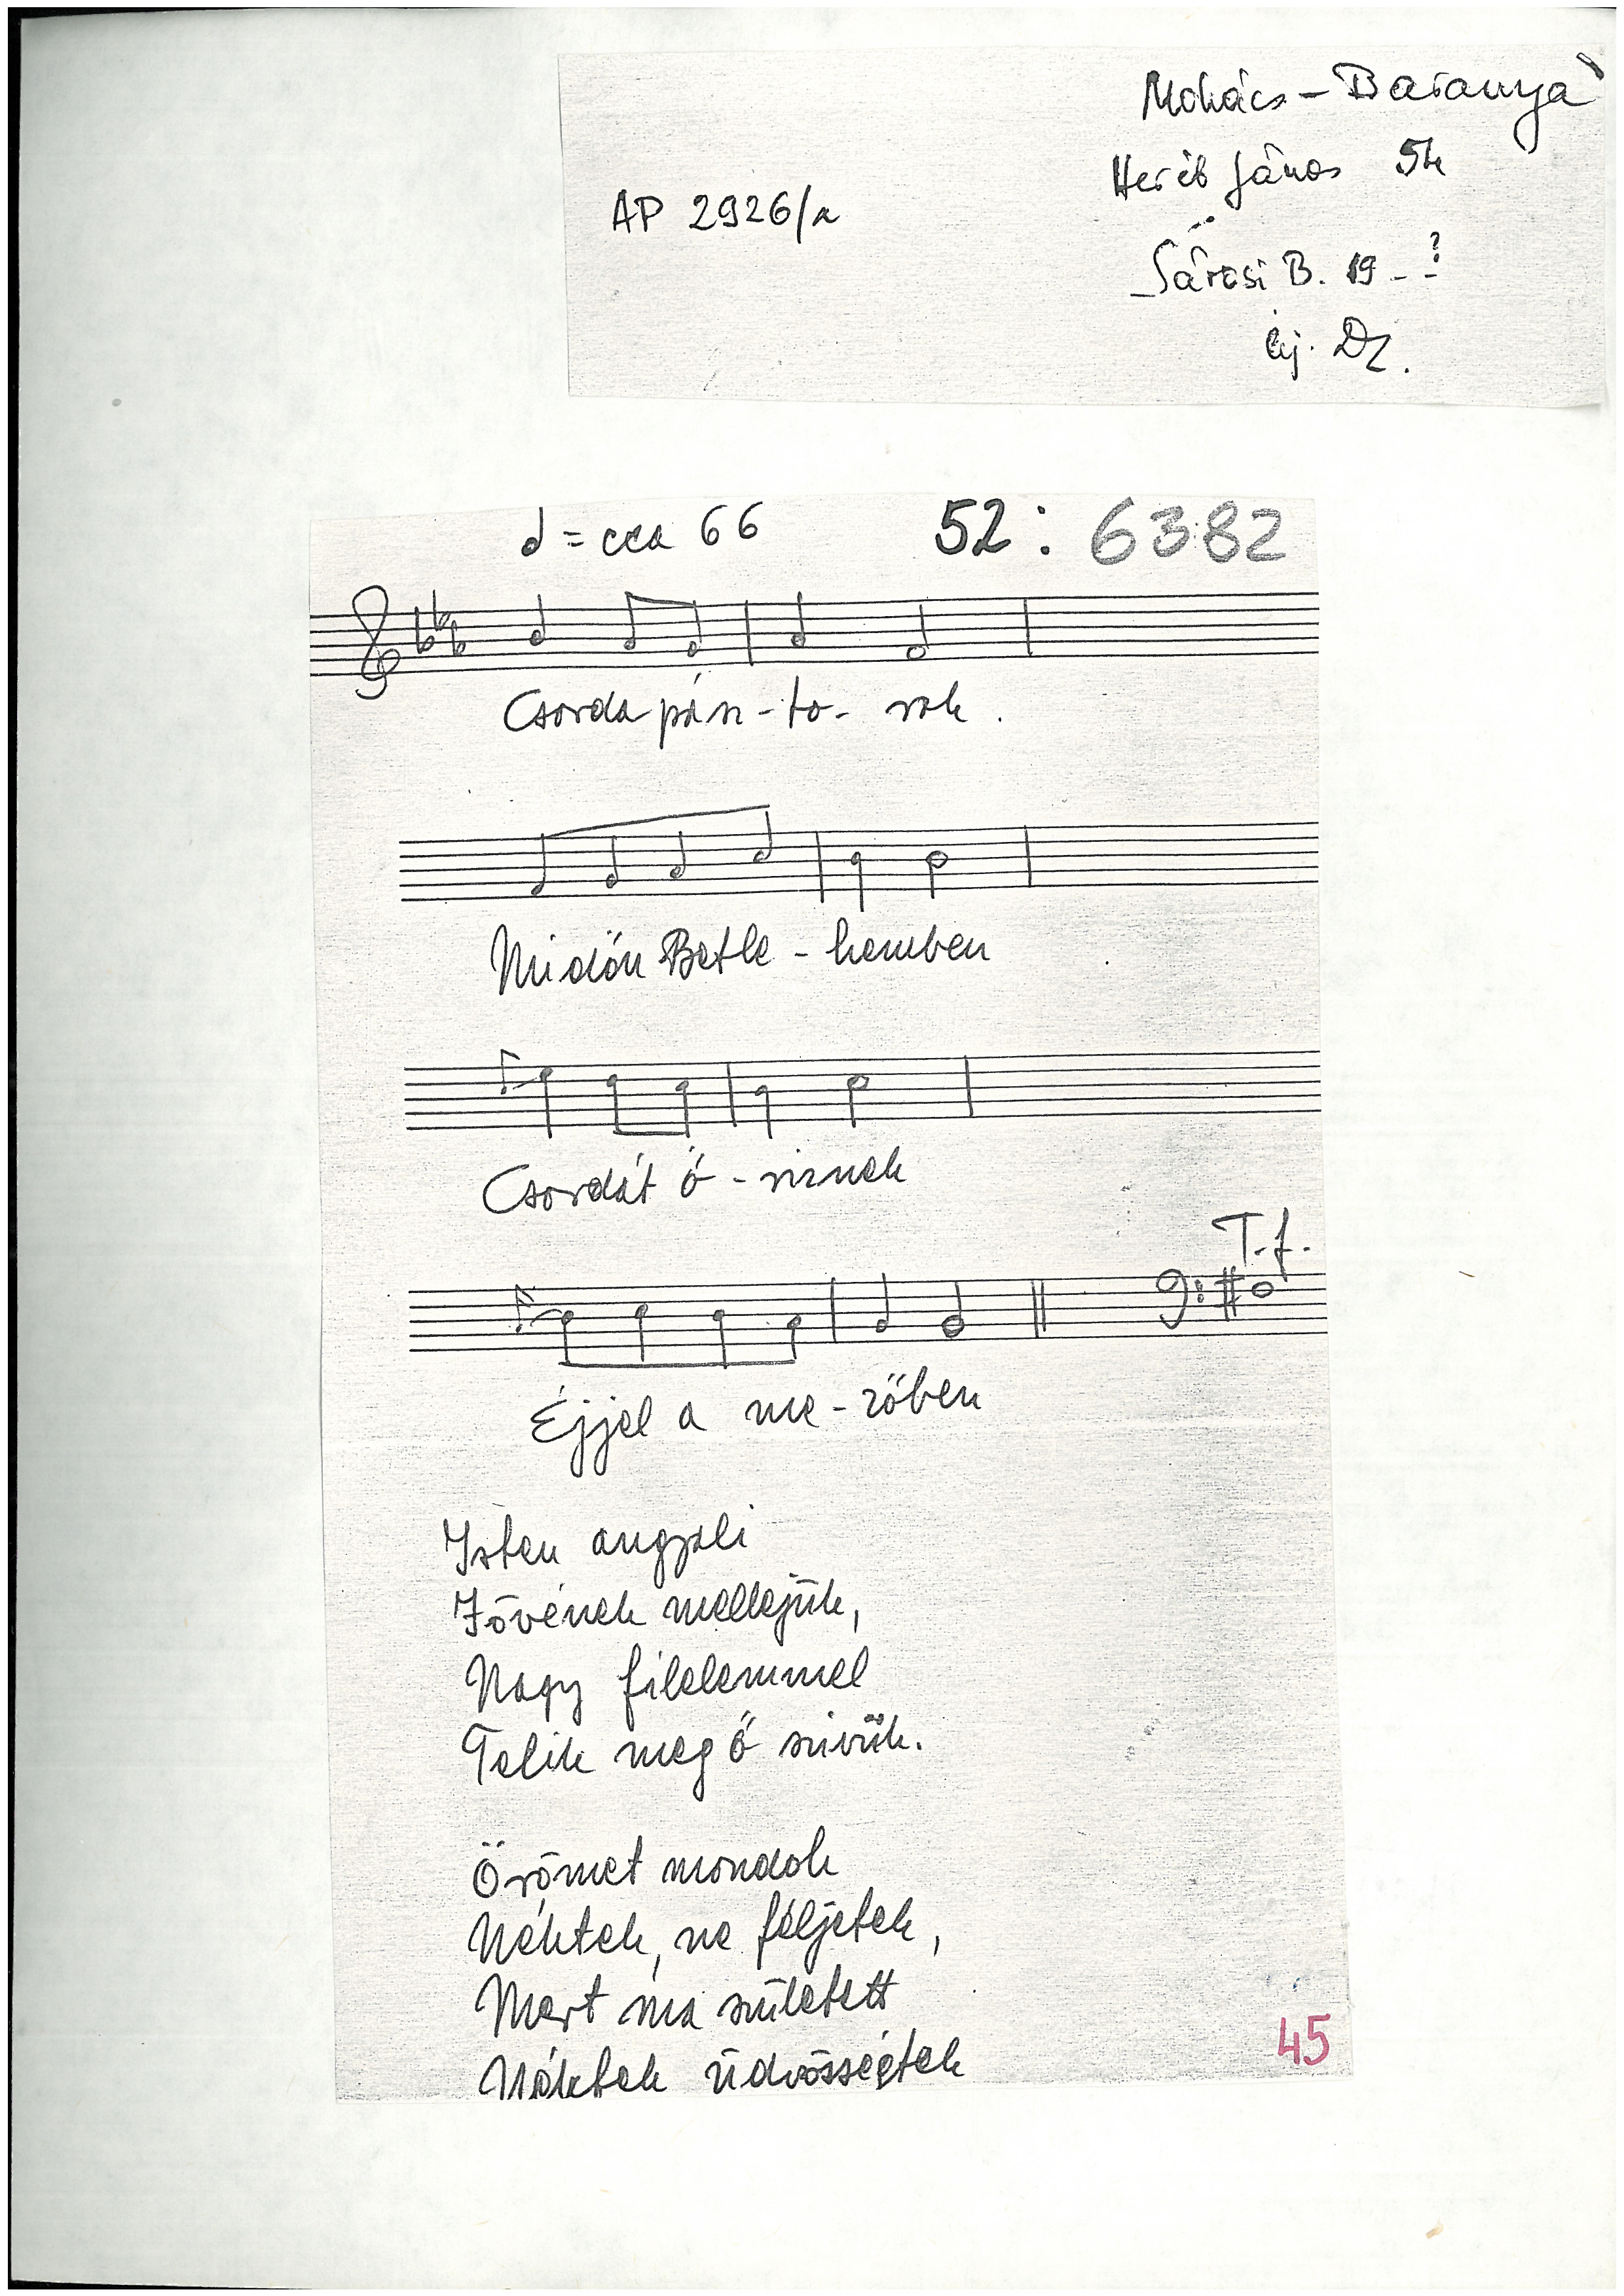 Mohács – Baranya
Heréb János 54
AP 2926/a
Sárosi B. 19 - - ?
lej. Dz.
= cca 66
52: 6382
Csorda pász - to - rok.
Midőn Betle - hemben
Csordát ő - riznek
T. f.
Éjjel a me - zőben
Isten angyali
Jövének mellejük,
Nagy filelemmel
Telik meg ő szivük.
Örömet mondok
Néktek, ne féljetek,
Mert ma született
Néktek üdvösségtek
45